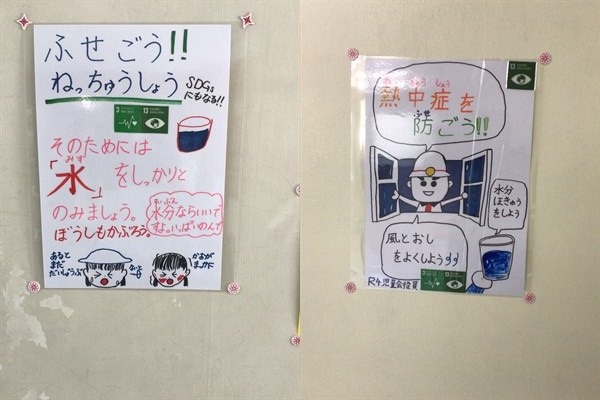 ふせごう!!
ねっちゅうしょう
SDGs
にもなる!!
3
13
そのためには
みず
「水」をしっかりと
のみましょう。
ぼうしもかぶろう。
水分ならいいで
すよ。いっぱいのんで
あると
まだ
だいじょうぶ
ないと
かおが
まっか
13
ねっちゅうしょう
熱中症を
ふせ
防ごう!!
水分
ほきゅう
をしよう
風とおし
をよくしようすす
R4児童会役員